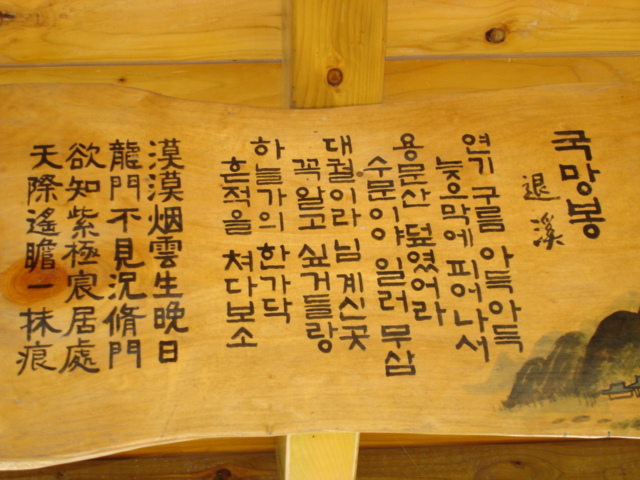 국망봉
退溪
연기 구름 아득아득
늦으막에 피어나서
용문산 덮였어라
수문이야 일러 무삼
대궐이라 님 계신곳
꼭 알고 싶거들랑
하늘가의 한가닥
흔적을 쳐다보소
漠漠烟雲生晩日
龍門不見況脩門
欲知紫極宸居處
天際遙瞻一抹痕